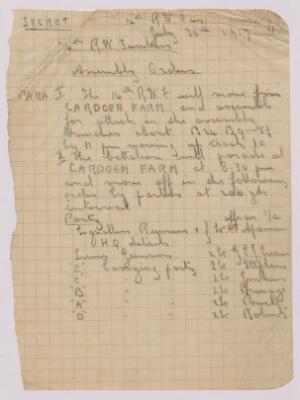 SECRET
14th R.W. Fus.
July 30th 1917
14th R.W. Fusiliers
Assembly Orders
PARA I. The 14th R.W.F will move from
CARDOEN FARM and assemble
for attack in the assembly
trenches about B24
by 11 pm moving up track 10
2 The battalion will parade at
CARDOEN FARM at 8.30 pm
and move off in the following
order by parties at 200 yds
interval
Party officer i/c
Signallers Runners
H.Q. details
Lewis Gunners 2Lt
Carrying party 2Lt
C " " 2Lt
B " " 2Lt
"A" " " 2Lt Powell
D " " 2Lt Roberts